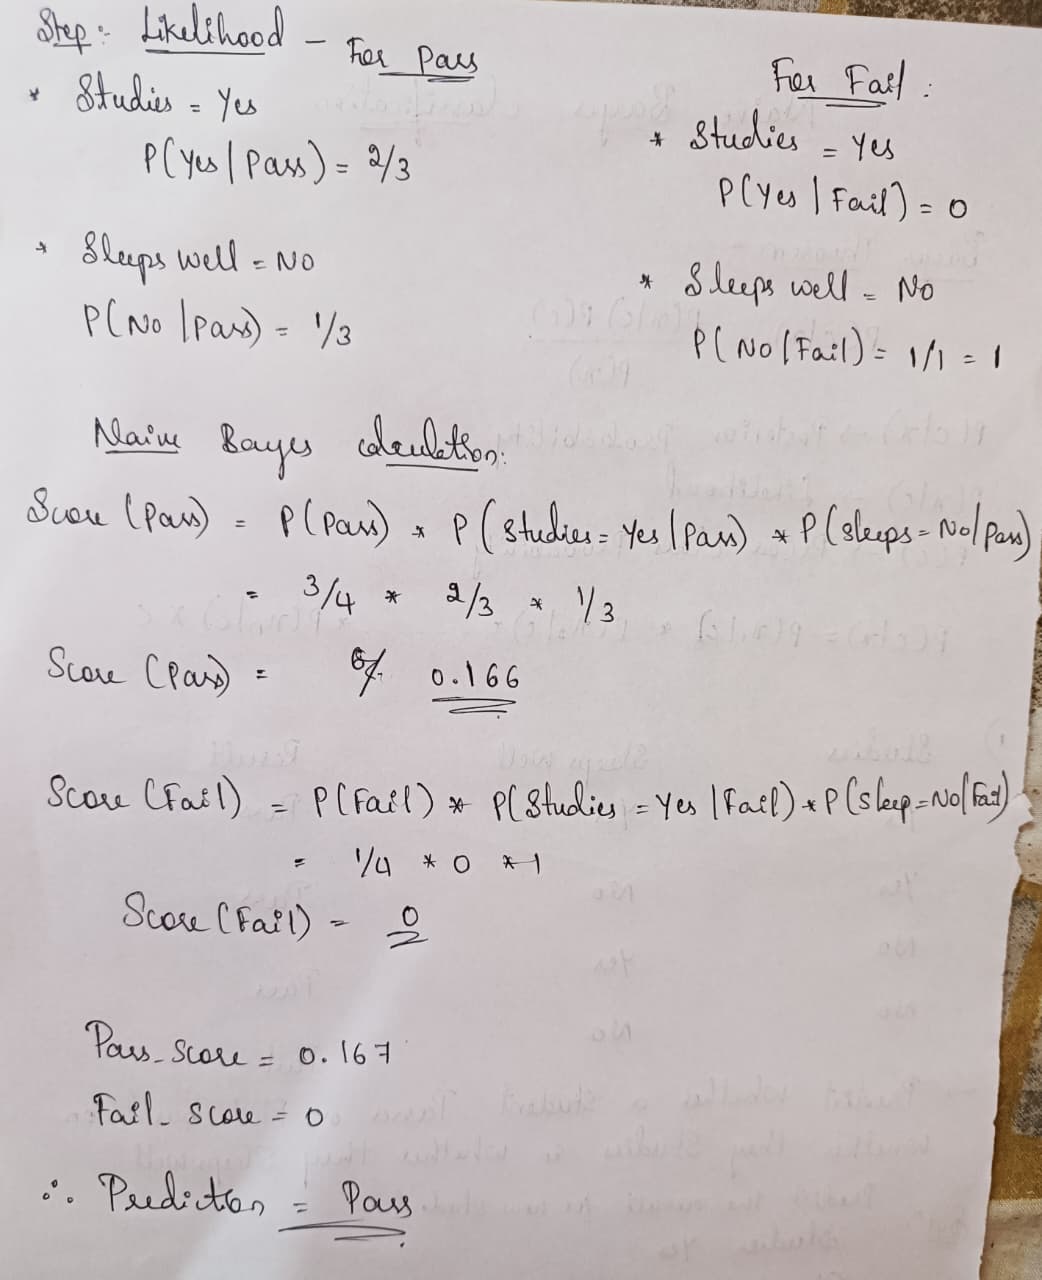 Step:- Likelihood - For Pass
* Studies = Yes
P(Yes | Pass) = 2/3
* Sleeps well = NO
P(No | Pass) = 1/3
For Fail :
* Studies = Yes
P(Yes | Fail) = 0
* Sleeps well = No
P( No | Fail) = 1/1 = 1
Naive Bayes calculation:
Score (Pass) = P(Pass) * P(Studies = Yes | Pass) * P(sleeps = No | Pass)
= 3/4 * 2/3 * 1/3
Score (Pass) = 0.166
Score (Fail) = P(Fail) * P(Studies = Yes | Fail) * P(sleep = No | Fail)
= 1/4 * 0 * 1
Score (Fail) = 0
Pass_Score = 0.167
Fail_Score = 0
∴ Prediction = Pass